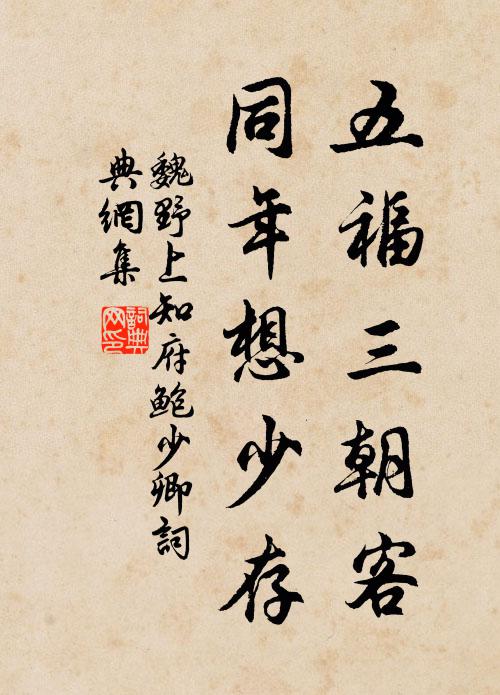 五福三朝客
同年想少存
魏野上知府鲍少卿詞
典網集
詞典
网印